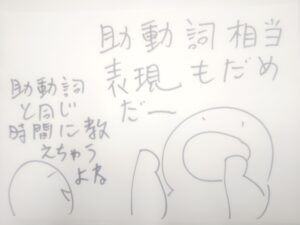 助動詞相当
表現もだめ
だー
助動詞
と同じ
時間に教
えちゃう
よね